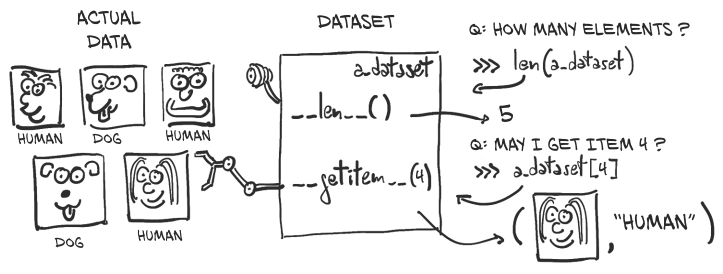 ACTUAL
DATA
HUMAN
DOG
HUMAN
DOG
HUMAN
DATASET
a_dataset
__len__()
__getitem__(4)
Q: HOW MANY ELEMENTS ?
>>> len(a_dataset)
5
Q: MAY I GET ITEM 4 ?
>>> a_dataset[4]
( , "HUMAN")